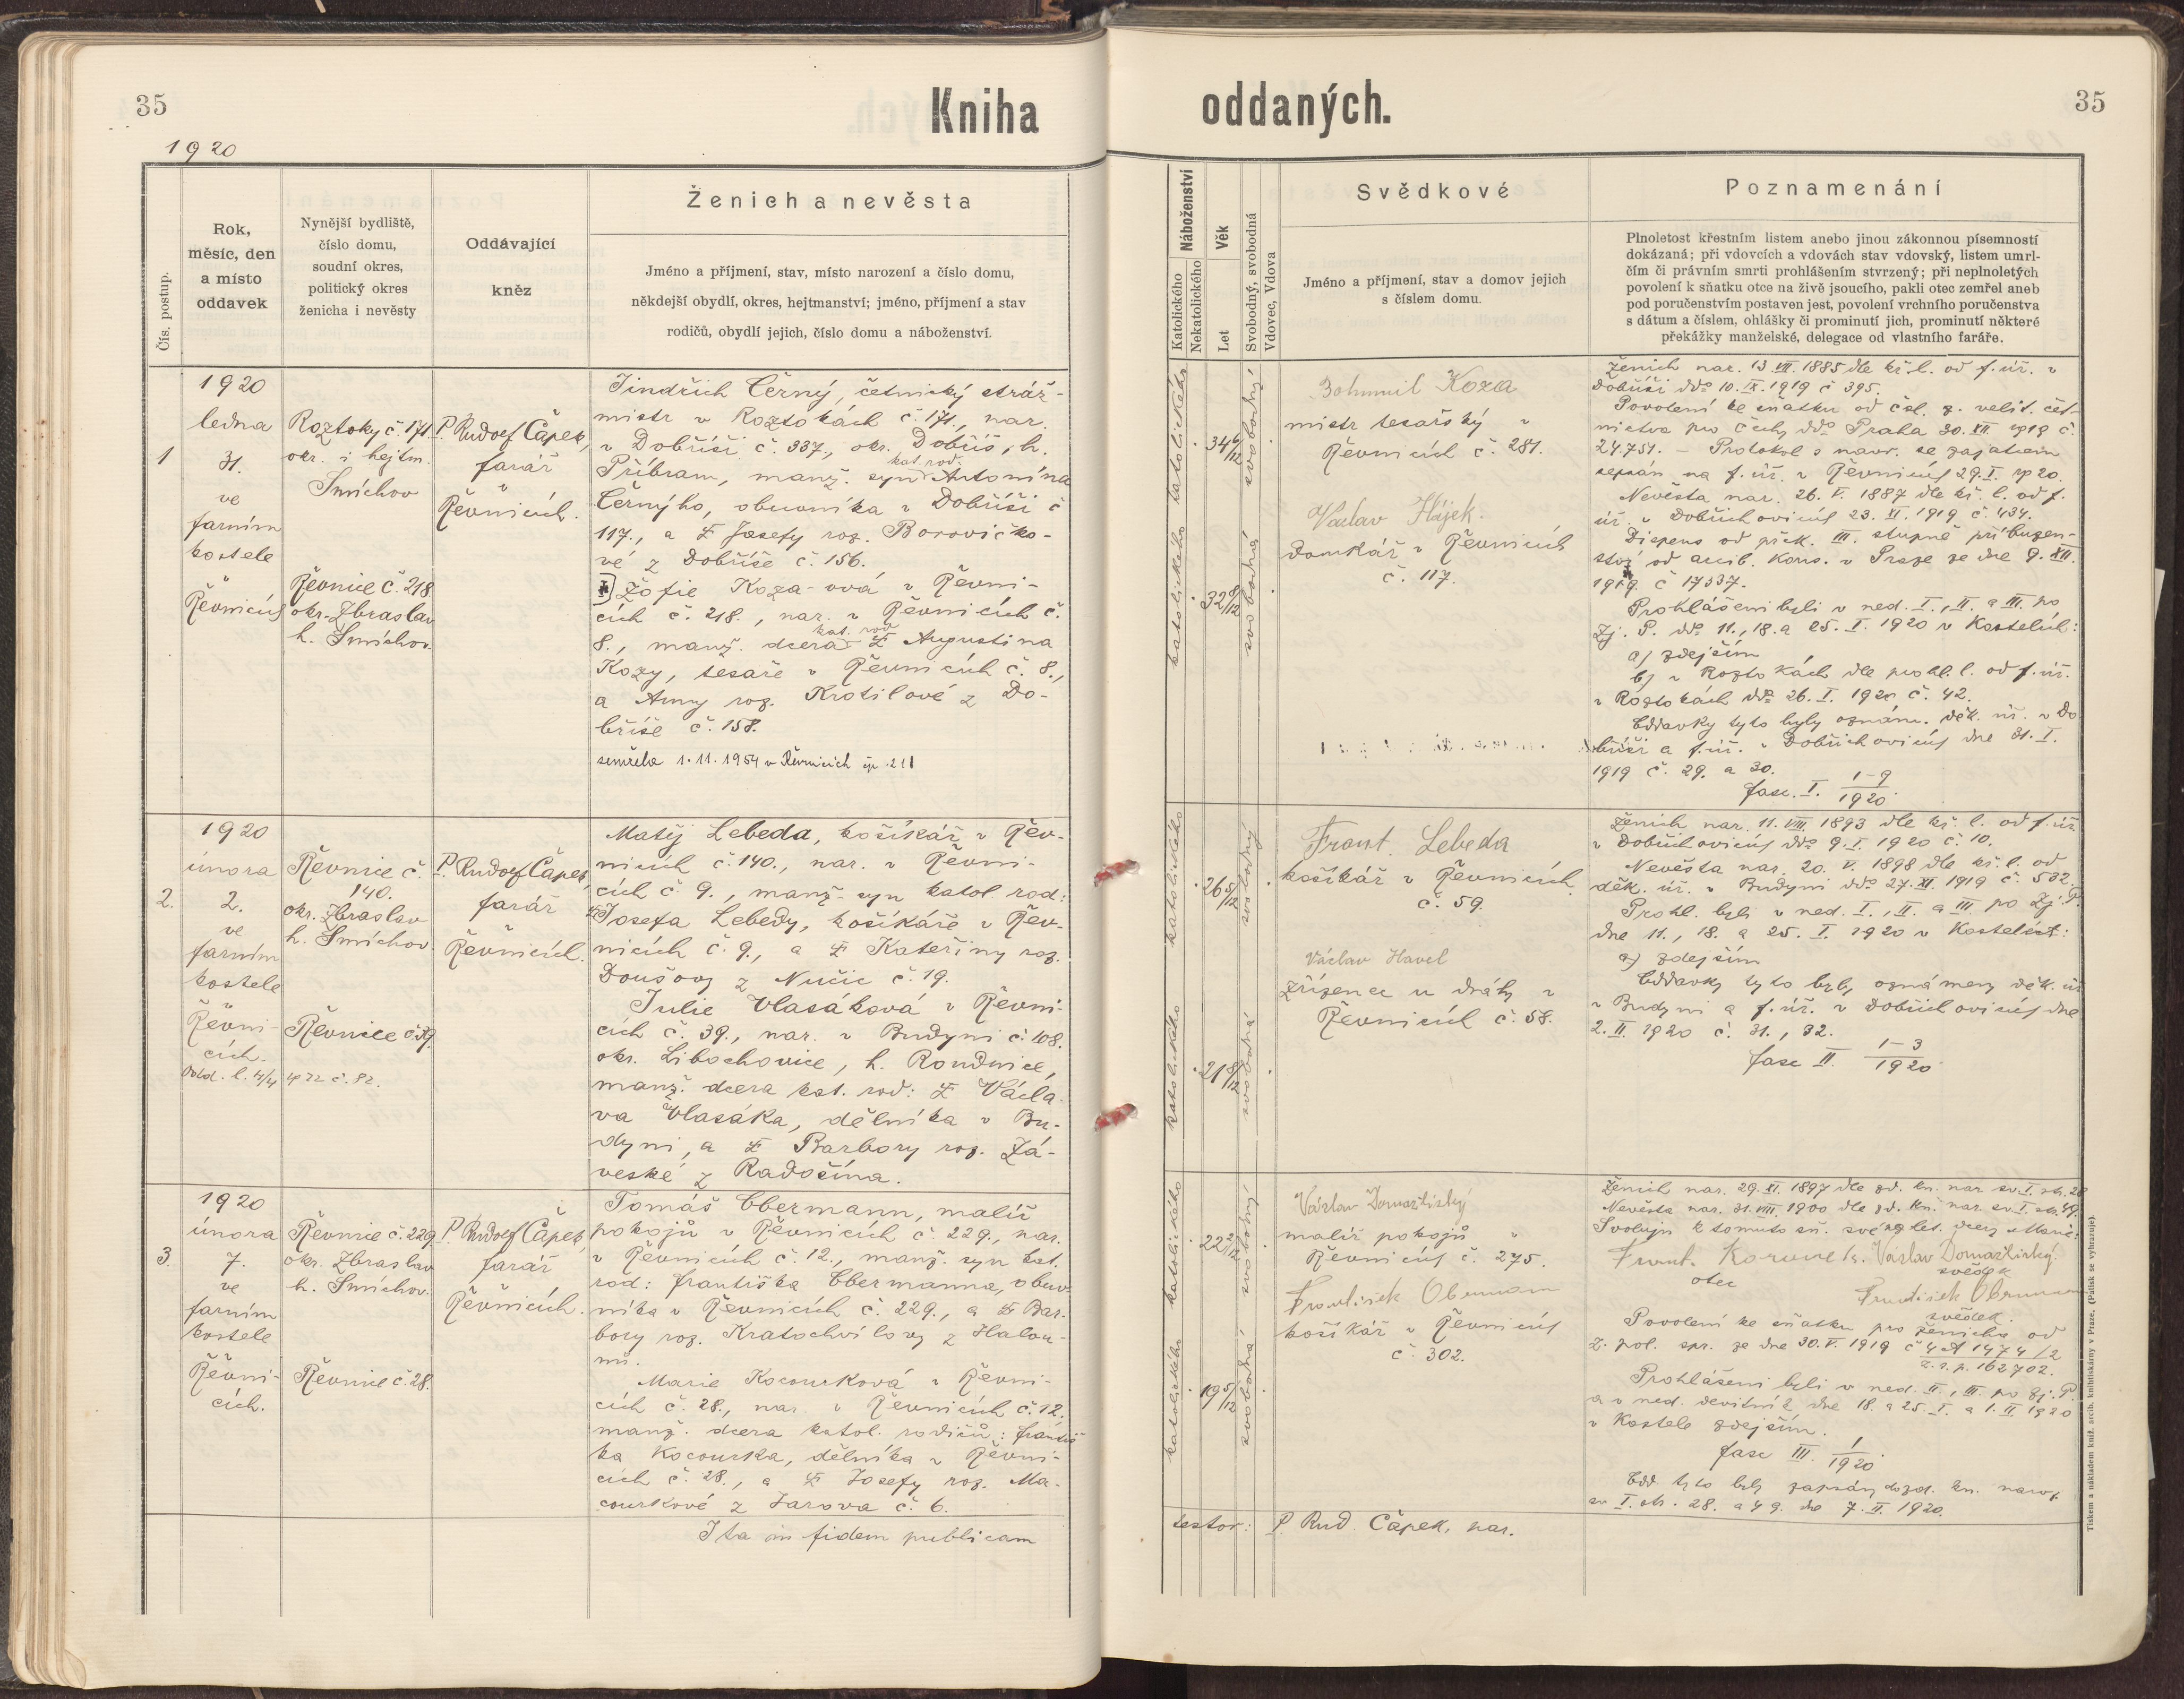 35
Kniha
1920
Čís. postup.
Rok,
měsíc, den
a místo
oddavek
Nynější bydliště,
číslo domu,
soudní okres,
politický okres
ženicha i nevěsty
Oddávající
kněz
Ženich a nevěsta
Jméno a příjmení, stav, místo narození a číslo domu,
někdejší obydlí, okres, hejtmanství; jméno, příjmení a stav
rodičů, obydlí jejich, číslo domu a náboženství.
1
1920
ledna
31.
ve
farním
kostele
v
Řevnicích
Roztoky č. 171.
okr. i hejtm.
Smíchov
Řevnice č. 218
okr. Zbraslav
h. Smíchov.
P. Rudolf Čapek,
farář
v
Řevnicích.
Jindřich Černý, četnický stráž-
mistr v Roztokách č 171., nar.
v Dobříši č. 337., okr. Dobříš, h.
kat. rod.
Příbram, manž. syn Antonína
Černýho, obuvníka v Dobříši č
117., a Josefy roz. Borovičko-
vé z Dobříše č. 156.
Žofie Koza-ová v Řevni-
cích č. 218., nar. v Řevnicích č.
kat. rod
8., manž. dcera Augustina
Kozy, tesaře v Řevnicích č. 8.,
a Anny roz. Krotilové z Do-
bříše č. 158.
zemřela 1. 11. 1954 v Řevnicích čp 211
2.
1920
února
2.
ve
farním
kostele
v
Řevni-
cích.
Odd. l. 4/4 1922 č. 82.
Řevnice č.
140.
okr. Zbraslav
h. Smíchov.
Řevnice č. 39.
P. Rudolf Čapek,
farář
v
Řevnicích.
Matěj Lebeda, košíkář v Řev-
nicích č. 140., nar. v Řevni-
cích č 9., manž. syn katol. rod:
Josefa Lebedy, košíkáře v Řev-
nicích č. 9., a Kateřiny roz.
Doušovy z Nučic č. 19.
Julie Vlasáková v Řevni-
cích č. 39., nar. v Budyni č. 108.
okr. Libochovice, h. Roudnice,
manž. dcera kat. rod: Václa-
va Vlasáka, dělníka v Bu-
dyni, a Barbory roz. Zá-
veské z Radošína.
3.
1920
února
7.
ve
farním
kostele
v
Řevni-
cích.
Řevnice č. 229
okr. Zbraslav
h. Smíchov.
Řevnice č. 28.
P. Rudolf Čapek,
farář
v
Řevnicích.
Tomáš Obermann, malíř
pokojů v Řevnicích č. 229., nar.
v Řevnicích č. 12., manž. syn kat.
rod: Františka Obermanna, obuv-
níka v Řevnicích č. 229., a Bar-
bory roz. Kratochvílovy z Haloun-
Marie Kocourková v Řevni-
cích č. 28., nar. v Řevnicích č. 12.
manž. dcera katol. rodičů: Františ-
ka Kocourka, dělníka v Řevni-
cích č. 28., a Josefy roz. Ma-
courkové z Jarova č. 6.
Ita in fidem publicam
oddaných.
35
Náboženství
Katolického
Nekatolického
Věk
Let
Svobodný, svobodná
Vdovec, Vdova
Svědkové
Jméno a příjmení, stav a domov jejich
s číslem domu.
Poznamenání
Plnoletost křestním listem anebo jinou zákonnou písemností
dokázaná; při vdovcích a vdovách stav vdovský, listem umrl-
čím či právním smrti prohlášením stvrzený; při neplnoletých
povolení k sňatku otce na živě jsoucího, pakli otec zemřel aneb
pod poručenstvím postaven jest, povolení vrchního poručenstva
s dátum a číslem, ohlášky či prominutí jich, prominutí některé
překážky manželské, delegace od vlastního faráře.
katolického
34 6/12
svobodný
katolického
32 8/12
svobodná
Bohumil Koza
mistr tesařský v
Řevnicích č. 281.
Václav Hájek.
Domkář v Řevnicích
č. 117.
Ženich nar. 13. VII. 1885 dle kř. l. od f. úř. v
Dobříši ddo 10. IX. 1919 č 395.
Povolení ke sňatku od čsl. z. velit. čet-
nictva pro Čechy ddo Praha 30. XII. 1919 č.
24.751. - Protokol s
sepsán na f. úř. v Řevnicích 29. I. 1920.
Nevěsta nar. 26. V. 1887 dle kř. l. od f.
úř. v Dobřichovicích 23. XI. 1919 č. 434.
Dispens od přek. III. stupně příbuzen-
ství od arcib. Kons. v Praze ze dne 9. XII.
1919 č 17337.
Prohlášeni byli v ned. I., II. a III. po
Zj. P. ddo 11., 18. a 25. I. 1920 v Kostelích:
a) zdejším
b) v Roztokách dle prohl. l. od f. úř.
v Roztokách ddo 26. I. 1920 č. 42.
Oddavky tyto byly oznám. děk. úř. v Do-
bříši a f. úř. v Dobřichovicích dne 31. I.
1919 č. 29. a 30.
fasc. I. 1-9/1920.
katolického
26 5/12
svobodný
katolického
21 8/12
svobodná
Frant. Lebeda
košíkář v Řevnicích
č. 59.
Václav Havel
zřízenec u dráhy v
Řevnicích č. 58.
Ženich nar. 11. VIII. 1893 dle kř. l. od f. úř.
v Dobřichovicích ddo 9. I. 1920 č. 10.
Nevěsta nar. 20. V. 1898 dle kř. l. od
děk. úř. v Budyni ddo 27. XI. 1919 č. 532.
Prohl. byli v ned. I., II. a III. po Zj. P.
dne 11., 18. a 25. I. 1920 v Kostelích:
a) zdejším
Oddavky tyto byly oznámeny děk. úř.
v Budyni a f. úř. v Dobřichovicích dne
2. II. 1920 č. 31., 32.
fasc II. 1-3/1920
katolického
22 2/12
svobodný
katolického
19 5/12
svobodná
Václav Domažlický
malíř pokojů v
Řevnicích č. 275.
František Obermann
košíkář v Řevnicích
č. 302.
Ženich nar. 29. XI. 1897 dle zd. kn. nar. sv. I. str. 28
Nevěsta nar. 31. VIII. 1900 dle zd. kn. nar. sv. I. str. 49.
Svoluji k tomuto sň. své nezlet. dcery Marie:
Frant. Václav Domažlický.
otec svědek
František Obermann
svědek.
Povolení ke sňatku pro ženicha od
z. pol. spr. ze dne 30. V. 1919 č 4 A 1474/2
z. s. p. 162702.
Prohlášeni byli v ned. II., III. po Zj. P.
a v ned. devítník dne 18. a 25. I. a 1. II 1920
v Kostele zdejším.
fasc III. 1/1920.
Odd tyto byly zapsány do zd. kn. naroz.
sv I. str. 28. a 49. dne 7. II. 1920.
testor: P Rud. Čapek, par.
Tiskem a nákladem kníž. arcib. knihtiskárny v Praze. (Pátisk se vyhrazuje).